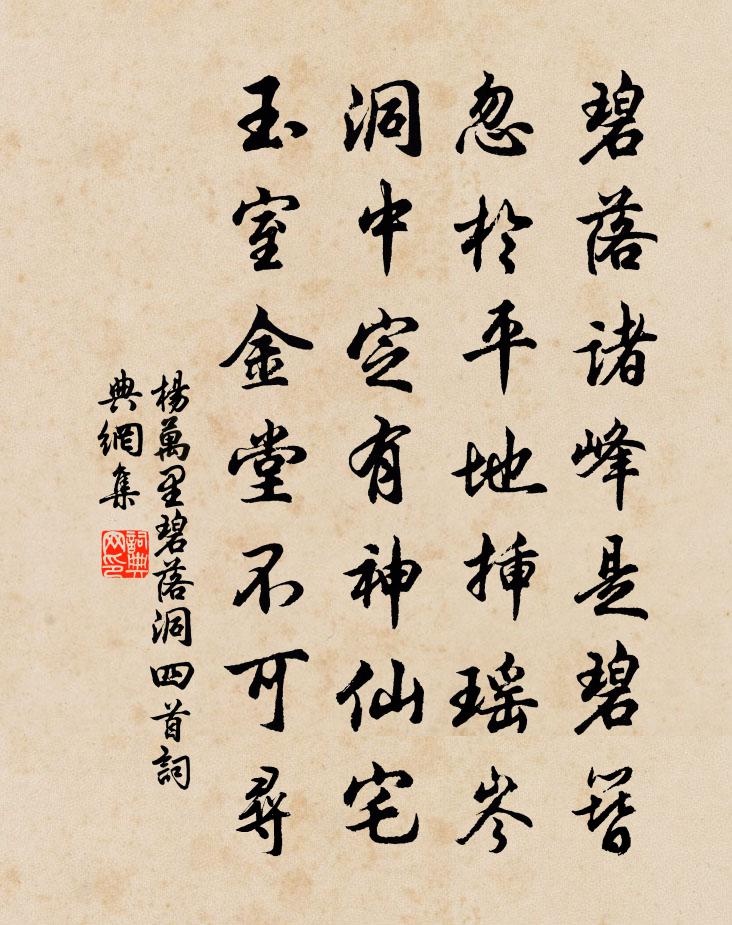 碧落諸峰是碧簪
忽於平地揷瑶岑
洞中定有神仙宅
玉室金堂不可尋
楊萬里碧落洞四首詞
典網集
詞典网印